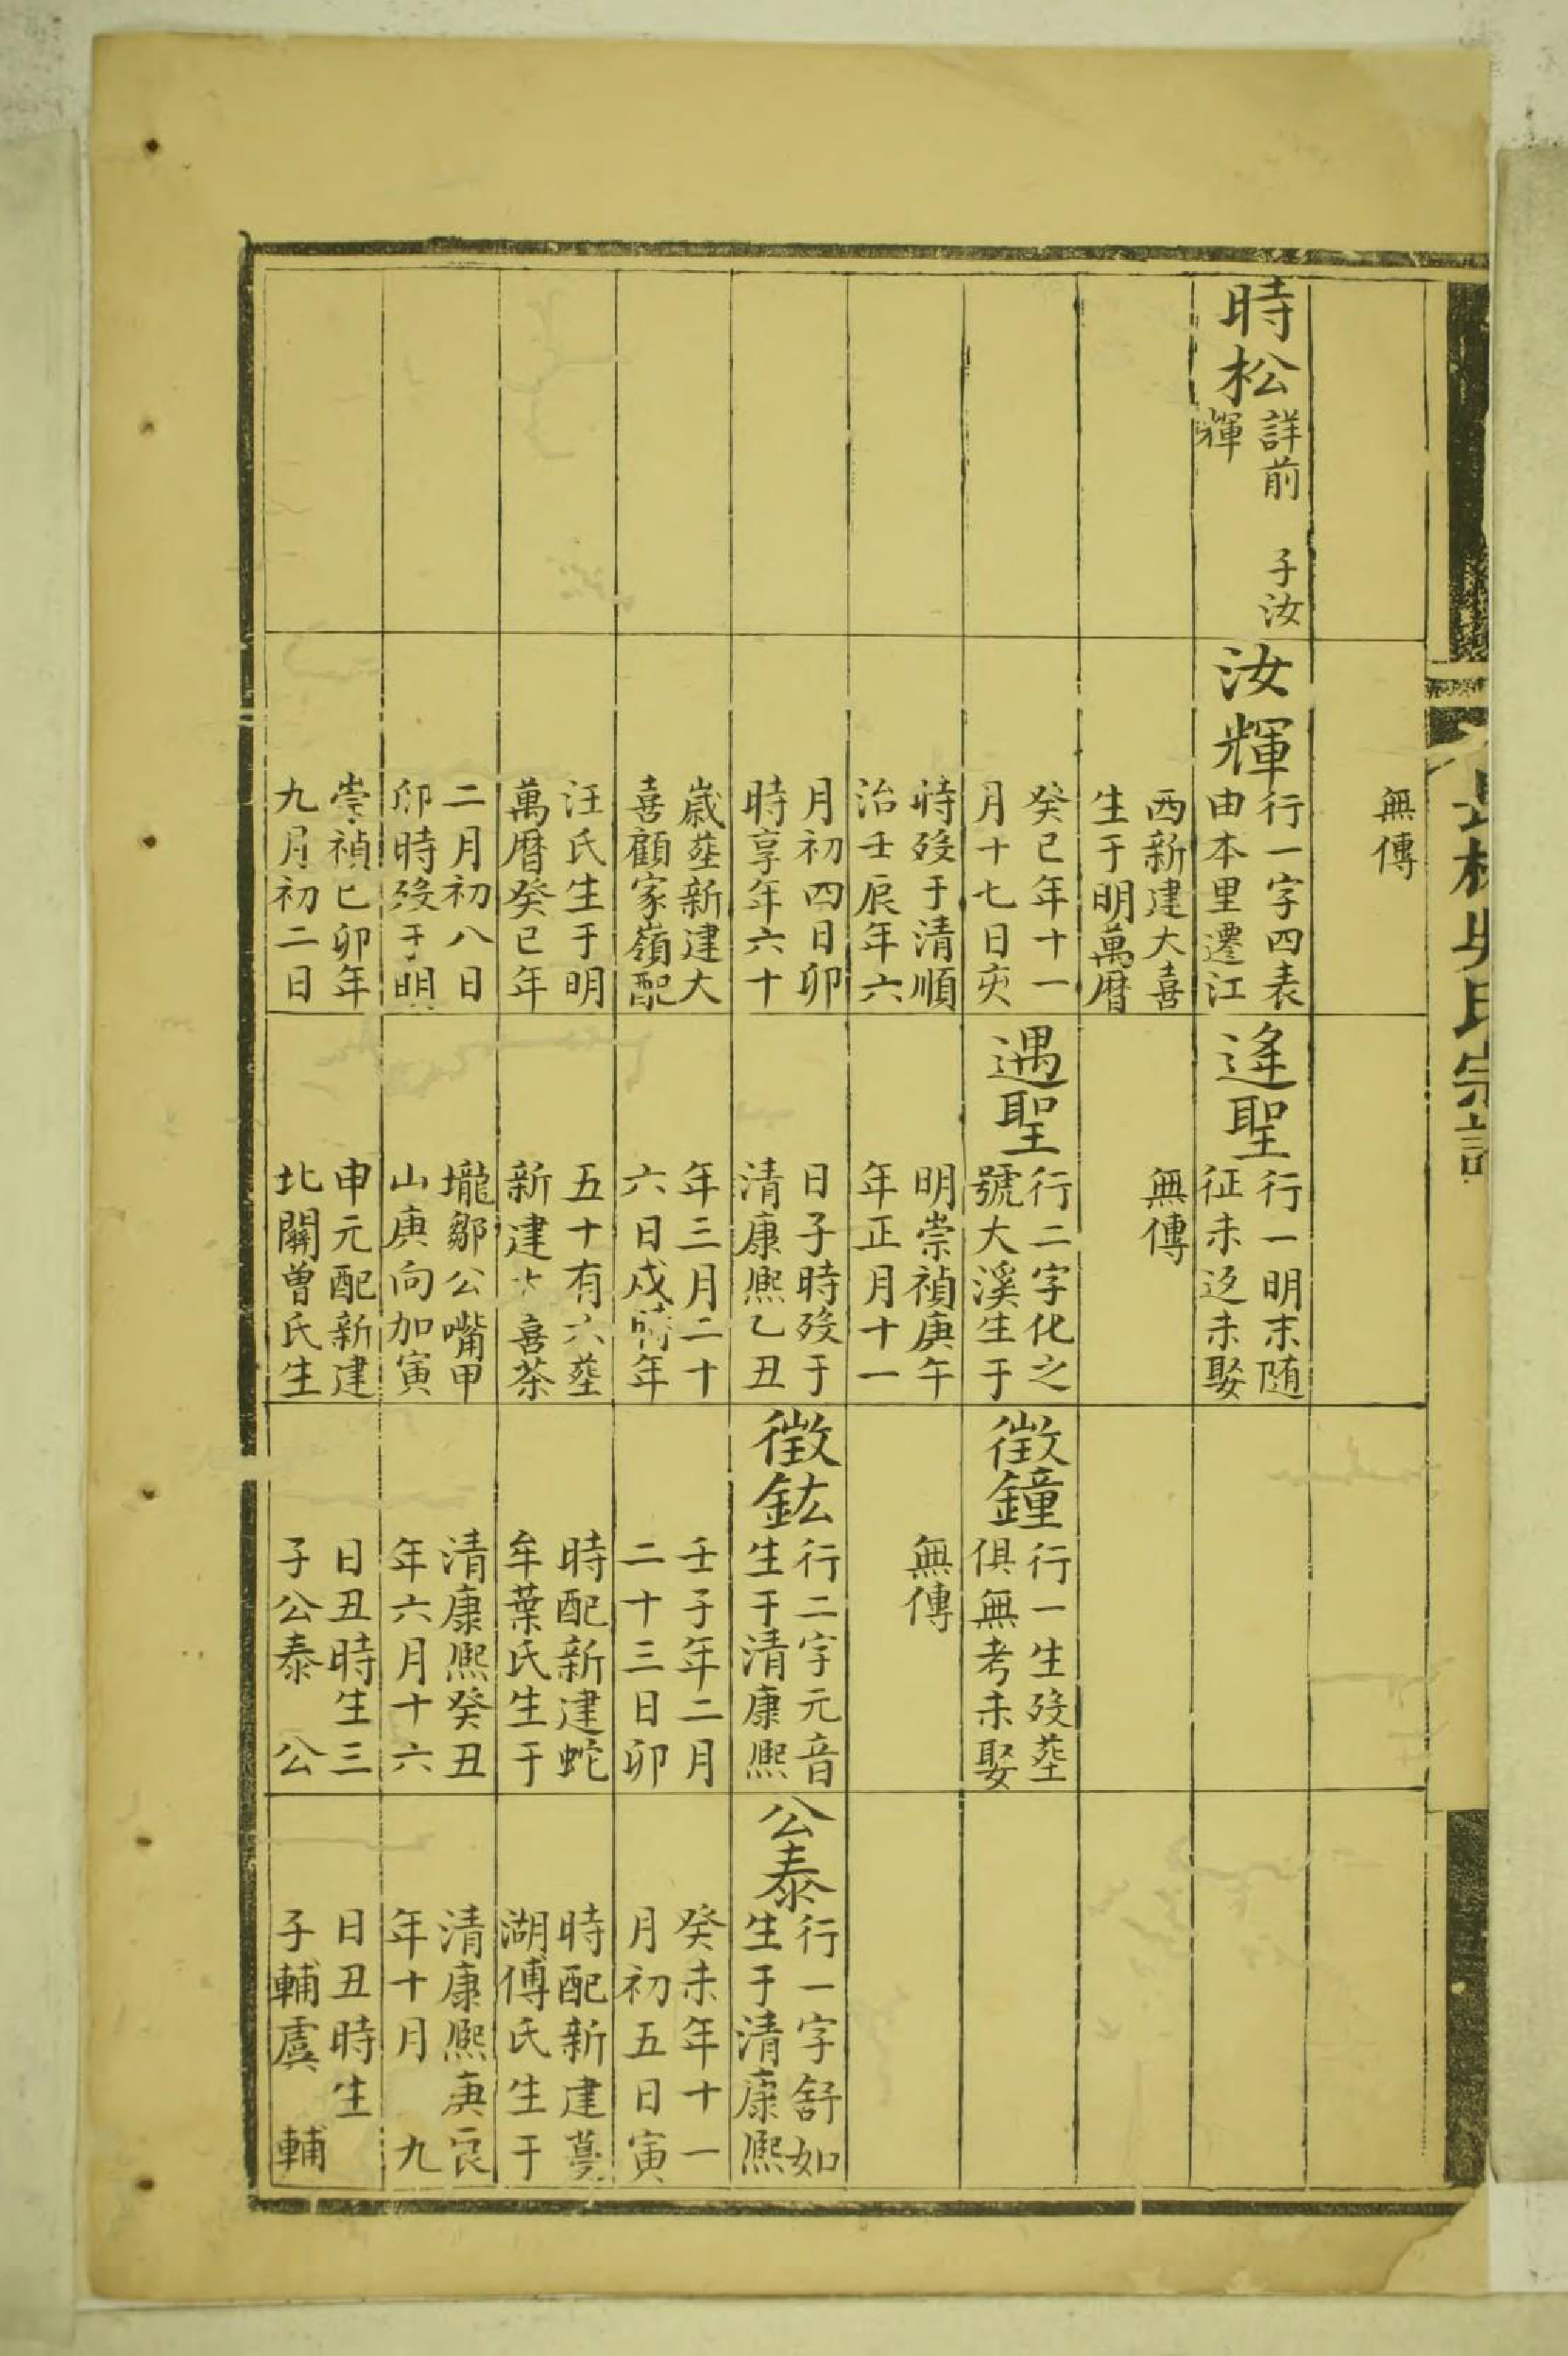 吳氏宗譜
時松
詳前 子汝
輝
無傳
汝輝
行一字四表
由本里遷江
西新建大喜
生于明萬曆
癸巳年十一
月十七日亥
時歿于清順
治壬辰年六
月初四日卯
時享年六十
歲塟新建大
喜顧家嶺配
汪氏生于明
萬曆癸巳年
二月初八日
卯時歿于明
崇禎已卯年
九月初二日
逢聖
行一明末随
征未返未娶
無傳
遇聖
行二字化之
號大溪生于
明崇禎庚午
年正月十一
日子時歿于
清康熙乙丑
年三月二十
六日戌時年
五十有六塟
新建大喜茶
壠鄒公嘴甲
山庚向加寅
申元配新建
北關曾氏生
徵鐘
行一生歿塟
俱無考未娶
無傳
徵鈜
行二字元音
生于清康熙
壬子年二月
二十三日卯
時配新建蛇
牟葉氏生于
清康熙癸丑
年六月十六
日丑時生三
子公泰 公
公泰
行一字舒如
生于清康熙
癸未年十一
月初五日寅
時配新建蔓
湖傅氏生于
清康熙庚辰
年十月 九
日丑時生
子輔虞 輔